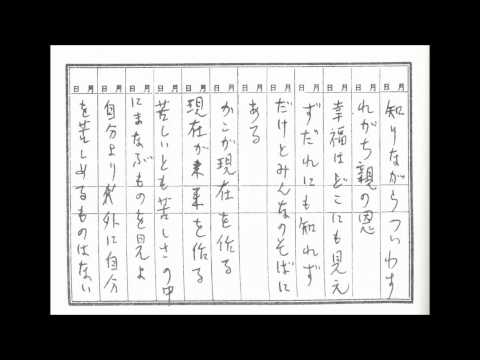 日 月 日 月 日 月 日 月 日 月 日 月 日 月 日 月 日 月 日 月 日 月 日 月
知りながらついわす
れがち親の恩
幸福はどこにも見え
ずだれにも知れず
だけとみんなのそばに
ある
かこが現在を作る
現在が未来を作る
苦しいとも苦しさの中
にまなぶものを見よ
自分より外に自分
を苦しめるものはない